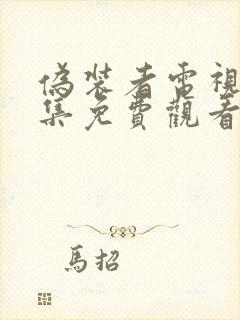 偽裝者電視
集免費觀看
馬招